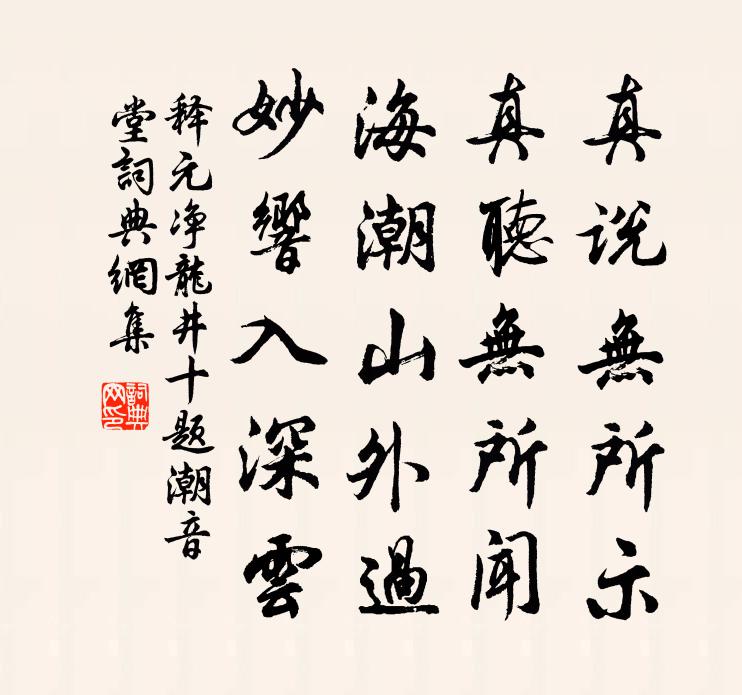 真說無所示
真聽無所聞
海潮山外過
妙響入深雲
释元净龍井十题潮音
堂詞典網集
詞典網印